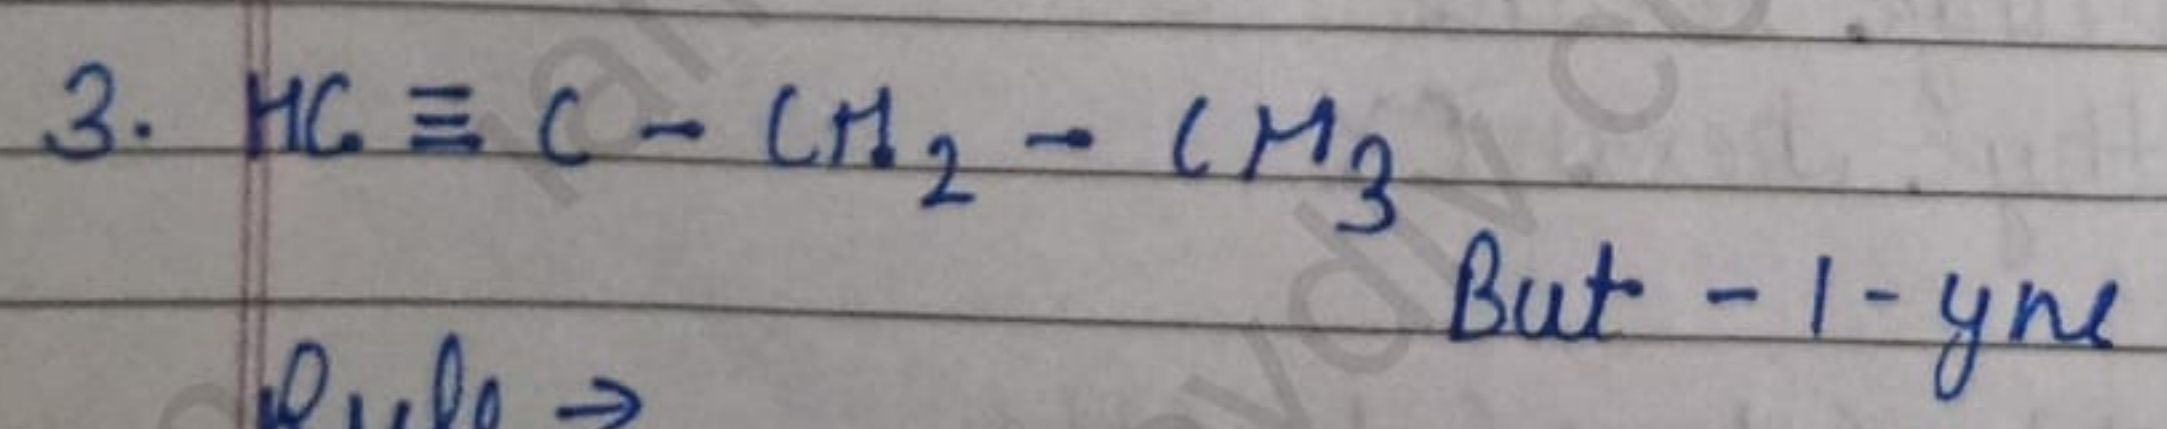 3. HC ≡ C - CH2 - CH3
But - 1 - yne
Rule →